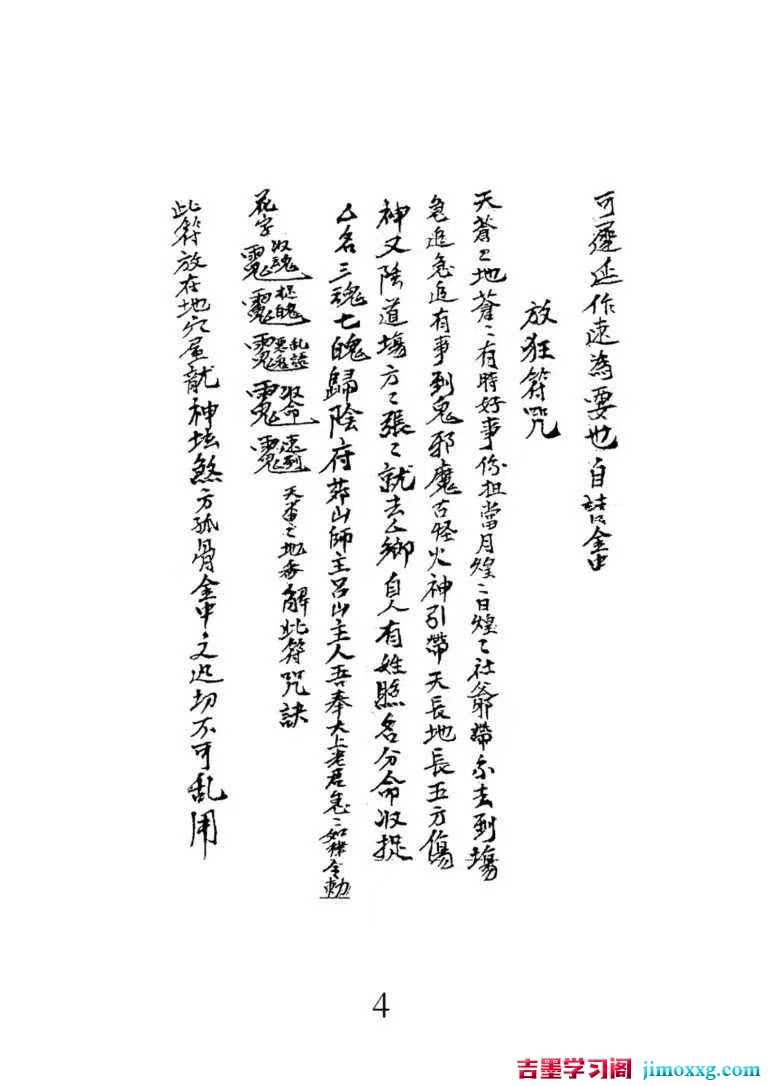 可遷延作速為要也自諎金中
放狂符咒
天蒼〻地蒼〻有時好事份担當月煌〻日煌〻社爺帶尔去到塲
急追急追有事到鬼邪魔古怪火神引帶天長地長五方傷
神又陰道塲方〻張〻就去厶鄉自人有姓照名分命收捉
厶名三魂七魄歸陰府茆山師主吕山主人吾奉太上老君急〻如律令勅
花字
收魂
捉魄
乱語
收命
速到
天 〻地 解此符咒訣
此符放在地穴屋龍神坛煞方孤骨金中 之処切不可乱用
4
吉墨学习阁 jimoxxg.com